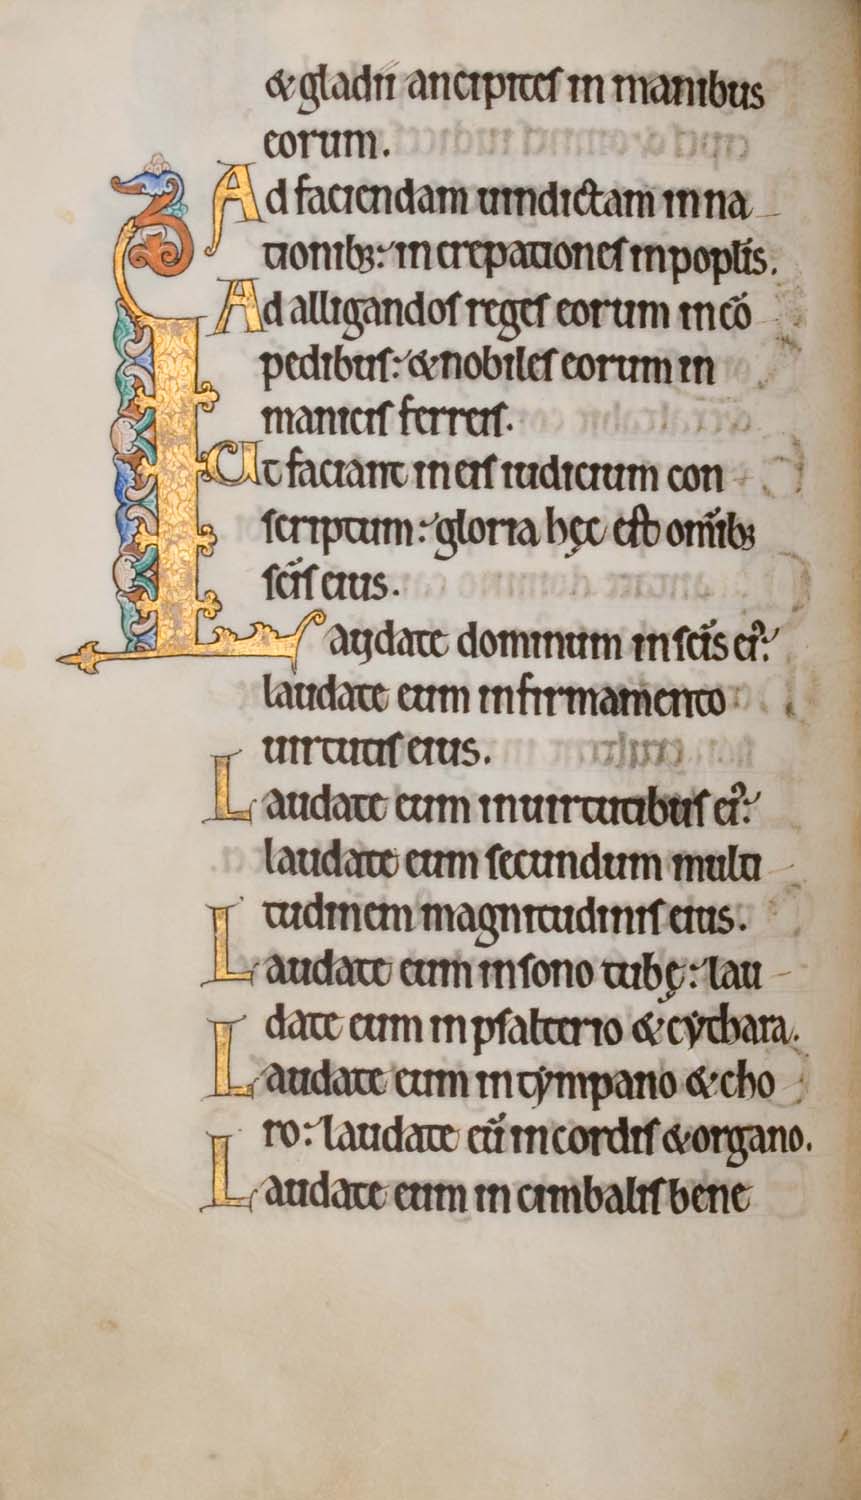 & gladii ancipites in manibus
eorum.
Ad faciendam uindictam in na
tionibꝫ: increpationes in poplis.
Ad alligandos reges eorum in cō
pedibus: & nobiles eorum in
manicis ferreis.
Ut faciant in eis iudicium con
scriptum: gloria hęc est omībꝫ
scīs eius.
Laudate dominum in scīs ei᷒:
laudate eum in firmamento
uirtutis eius.
Laudate eum in uirtutibus ei᷒:
laudate eum secundum multi
tudinem magnitudinis eius.
Laudate eum in sono tubę: lau
date eum in psalterio & cythara.
Laudate eum in tympano & cho
ro: laudate eū in cordis & organo.
Laudate eum in cimbalis bene